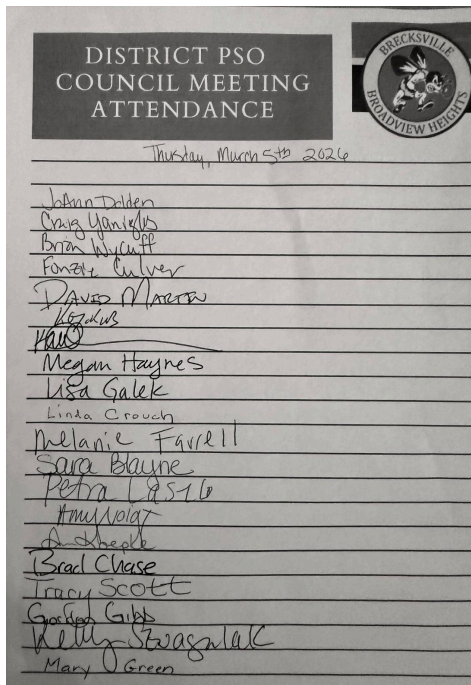 DISTRICT PSO
COUNCIL MEETING
ATTENDANCE
BRECKSVILLE
BROADVIEW HEIGHTS
Thursday, March 5th 2026
JoAnn Dolden
Craig
Brian Wycuff
Fonzie Culver
DAVID MARTIN
Megan Haynes
Lisa Galek
Linda Crouch
Melanie Farrell
Sara Blayne
Petra
Amy Voigt
Brad Chase
Tracy Scott
Gordon Gibb
Kelly
Mary Green